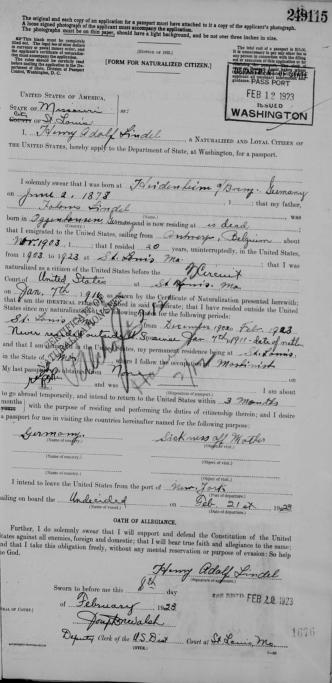 249115
The original and each copy of an application for a passport must have attached to it a copy of the applicant's photograph.
A loose signed photograph of the applicant must accompany the application.
The photographs must be on thin paper, should have a light background, and be not over three inches in size.
[EDITION OF 1921.]
[FORM FOR NATURALIZED CITIZEN.]
DEPARTMENT OF STATE
PASSPORT
FEB 12 1923
ISSUED
WASHINGTON
UNITED STATES OF AMERICA,
STATE OF Missouri
City
COUNTY OF St Louis
ss:
I, Henry Adolf Lindel, A NATURALIZED AND LOYAL CITIZEN OF
THE UNITED STATES, hereby apply to the Department of State, at Washington, for a passport.
I solemnly swear that I was born at Heidenheim Germany
on June 2, 1878; that my father,
Lindel, was
born in Germany and is now residing at is dead;
that I emigrated to the United States, sailing from Antwerp, Belgium about
Nov. 1903; that I resided 20 years, uninterruptedly, in the United States,
from 1903 to 1923 at St Louis Mo; that I was
naturalized as a citizen of the United States before the Circuit
Court of United States at St Louis, Mo
on Jan. 7th 1911, as shown by the Certificate of Naturalization presented herewith;
that I am the IDENTICAL PERSON described in said Certificate; that I have resided outside the United
States since my naturalization at the following places for the following periods:
St. Louis from December 1903 to Feb. 1923
Never resided outside U.S. since Jan 7th 1911 - Date of nath.
and that I am domiciled in the United States, my permanent residence being at St. Louis
in the State of Mo, where I follow the occupation of Machinist
My last passport was obtained from None on
and was . I am about
to go abroad temporarily, and intend to return to the United States within 3 Months
months with the purpose of residing and performing the duties of citizenship therein; and I desire
a passport for use in visiting the countries hereinafter named for the following purpose:
Germany Sickness of Mother
(Name of country.) (Object of visit.)
(Name of country.) (Object of visit.)
(Name of country.) (Object of visit.)
I intend to leave the United States from the port of New York
(Port of departure.)
sailing on board the Undecided on Feb. 21st 1923
(Name of vessel.) (Date of departure.)
OATH OF ALLEGIANCE.
Further, I do solemnly swear that I will support and defend the Constitution of the United
States against all enemies, foreign and domestic; that I will bear true faith and allegiance to the same;
and that I take this obligation freely, without any mental reservation or purpose of evasion: So help
me God.
Henry Adolf Lindel
(Signature of applicant.)
Sworn to before me this 8th day
of February 1923
FEB 12 1923
[SEAL OF COURT.]
Joseph Walsh
1676
Deputy Clerk of the U.S. Dist Court at St Louis Mo.
(OVER.)